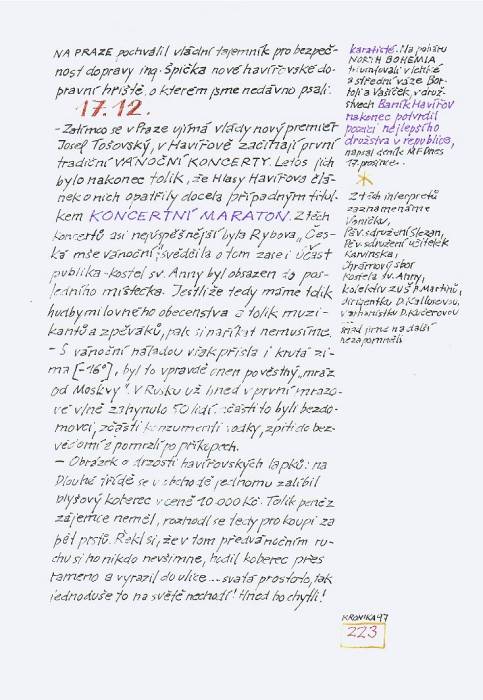 NA PRAZE pochválil vládní tajemník pro bezpeč-
nost dopravy ing. Špička nové havířovské do-
pravní hřiště, o kterém jsme nedávno psali.
17.12.
- Zatímco se v Praze ujímá vlády nový premiér
Josef Tošovský, v Havířově začínají první
tradiční VÁNOČNÍ KONCERTY. Letos jich
bylo nakonec tolik, že Hlasy Havířova člá-
nek o nich opatřily docela případným titul-
kem KONCERTNÍ MARATON. Z těch
koncertů asi nejúspěšnější byla Rybova „Čes-
ká mše vánoční", svědčila o tom zase i účast
publika - kostel sv. Anny byl obsazen do pos-
ledního místečka. Jestliže tedy máme tolik
hudbymilovného obecenstva a tolik muzi-
kantů a zpěváků, pak si naříkat nemusíme.
- S vánoční náladou však přišla i krutá zi-
ma [-16°], byl to vpravdě onen pověstný „mráz
od Moskvy". V Rusku už hned v první mrazo-
vé vlně zahynulo 50 lidí, zčásti to byli bezdo-
movci, zčásti konzumenti vodky, zpití do bez-
vědomí a pomrzlí po příkopech.
- Obrázek o drzosti havířovských lapků: na
Dlouhé třídě se v obchodě jednomu zalíbil
plyšový koberec v ceně 10 000 Kč. Tolik peněz
zájemce neměl, rozhodl se tedy pro koupi za
pět prstů. Řekl si, že v tom předvánočním ru-
chu si ho nikdo nevšimne, hodil koberec přes
rameno a vyrazil do ulice... svatá prostoto, tak
jednoduše to na světě nechodí! Hned ho chytli!
karatisté. Na poháru
NORTH BOHEMIA
triumfovali v lehké
a střední váze Bor-
toli a Vašíček, v druž-
stvech Baník Havířov
nakonec potvrdil
pozici nejlepšího
družstva v republice,
napsal deník MF Dnes
17. prosince.
Z těch interpretů
zaznamenáme
Voničku,
Pěv. sdružení Slezan,
Pěv. sdružení učitelek
Karvinska,
Chrámový sbor
kostela sv. Anny,
kolektiv ZUŠ B. Martinů,
dirigentku D.
varhanistku D. Kuderovou
snad jsme na další
nezapomněli
KRONIKA 97
223